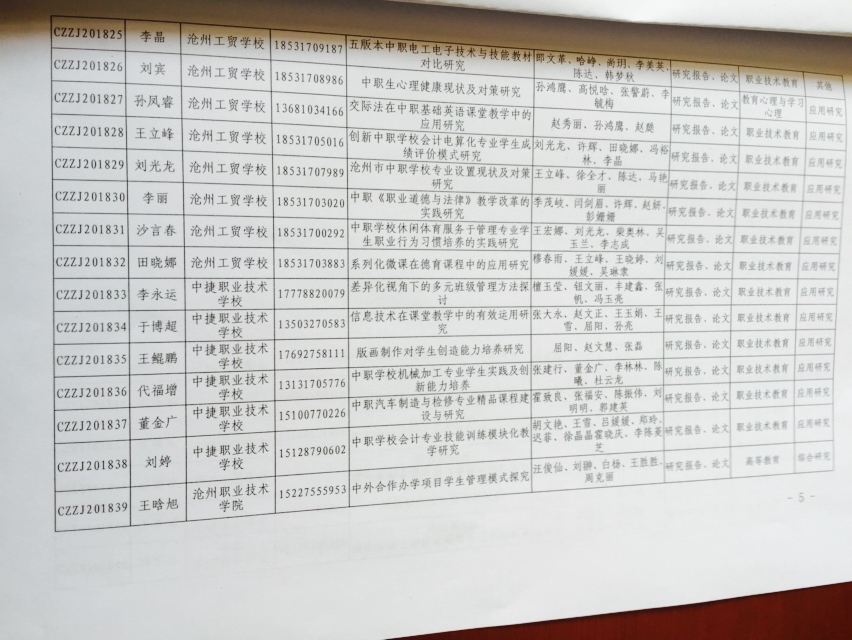 CZZJ201825 李晶 沧州工贸学校 18531709187 五版本中职电工电子技术与技能教材对比研究 郎文革、哈峰、尚玥、李美英、陈达、韩梦秋 研究报告、论文 职业技术教育 其他
CZZJ201826 刘宾 沧州工贸学校 18531708986 中职生心理健康现状及对策研究 孙鸿鹰、高悦晗、张警蔚、李毓梅 研究报告、论文 教育心理与学习心理 应用研究
CZZJ201827 孙凤睿 沧州工贸学校 13681034166 交际法在中职基础英语课堂教学中的应用研究 赵秀丽、孙鸿鹰、赵懿 研究报告、论文 职业技术教育 应用研究
CZZJ201828 王立峰 沧州工贸学校 18531705016 创新中职学校会计电算化专业学生成绩评价模式研究 刘光龙、许辉、田晓娜、冯裕林、李晶 研究报告、论文 职业技术教育 应用研究
CZZJ201829 刘光龙 沧州工贸学校 18531707989 沧州市中职学校专业设置现状及对策研究 王立峰、徐全才、陈达、马艳丽 研究报告、论文 职业技术教育 应用研究
CZZJ201830 李丽 沧州工贸学校 18531703020 中职《职业道德与法律》教学改革的实践研究 李茂岐、闫剑眉、许辉、赵妍、彭姗姗 研究报告、论文 职业技术教育 应用研究
CZZJ201831 沙言春 沧州工贸学校 18531700292 中职学校休闲体育服务于管理专业学生职业行为习惯培养的实践研究 王宏娜、刘光龙、柴奥林、吴玉兰、李志成 研究报告、论文 职业技术教育 应用研究
CZZJ201832 田晓娜 沧州工贸学校 18531703883 系列化微课在德育课程中的应用研究 穆春雨、王立峰、王晓婷、刘媛媛、吴琳隶 研究报告、论文 职业技术教育 应用研究
CZZJ201833 李永运 中捷职业技术学校 17778820079 差异化视角下的多元班级管理方法探讨 檀玉莹、钮文丽、丰建鑫、张帆、冯玉亮 研究报告、论文 职业技术教育 应用研究
CZZJ201834 于博超 中捷职业技术学校 13503270583 信息技术在课堂教学中的有效运用研究 张大永、赵文正、王玉娟、王雪、屈阳、孙亮 研究报告、论文 职业技术教育 应用研究
CZZJ201835 王鲲鹏 中捷职业技术学校 17692758111 版画制作对学生创造能力培养研究 屈阳、赵文慧、张磊 研究报告、论文 职业技术教育 应用研究
CZZJ201836 代福增 中捷职业技术学校 13131705776 中职学校机械加工专业学生实践及创新能力培养 张建行、董金广、李林林、陈曦、杜云龙 研究报告、论文 职业技术教育 应用研究
CZZJ201837 董金广 中捷职业技术学校 15100770226 中职汽车制造与检修专业精品课程建设与研究 霍致良、张福安、陈振伟、刘明明、郭建英 研究报告、论文 职业技术教育 应用研究
CZZJ201838 刘婷 中捷职业技术学校 15128790602 中职学校会计专业技能训练模块化教学研究 胡文艳、王雪、吕媛媛、郑玲、迟菲、徐晶晶霍晓庆、李陈蔓芝 研究报告、论文 职业技术教育 应用研究
CZZJ201839 王晗旭 沧州职业技术学院 15227555953 中外合作办学项目学生管理模式探究 汪俊仙、刘翀、白杨、王胜胜、周克丽 研究报告、论文 高等教育 综合研究
- 5 -